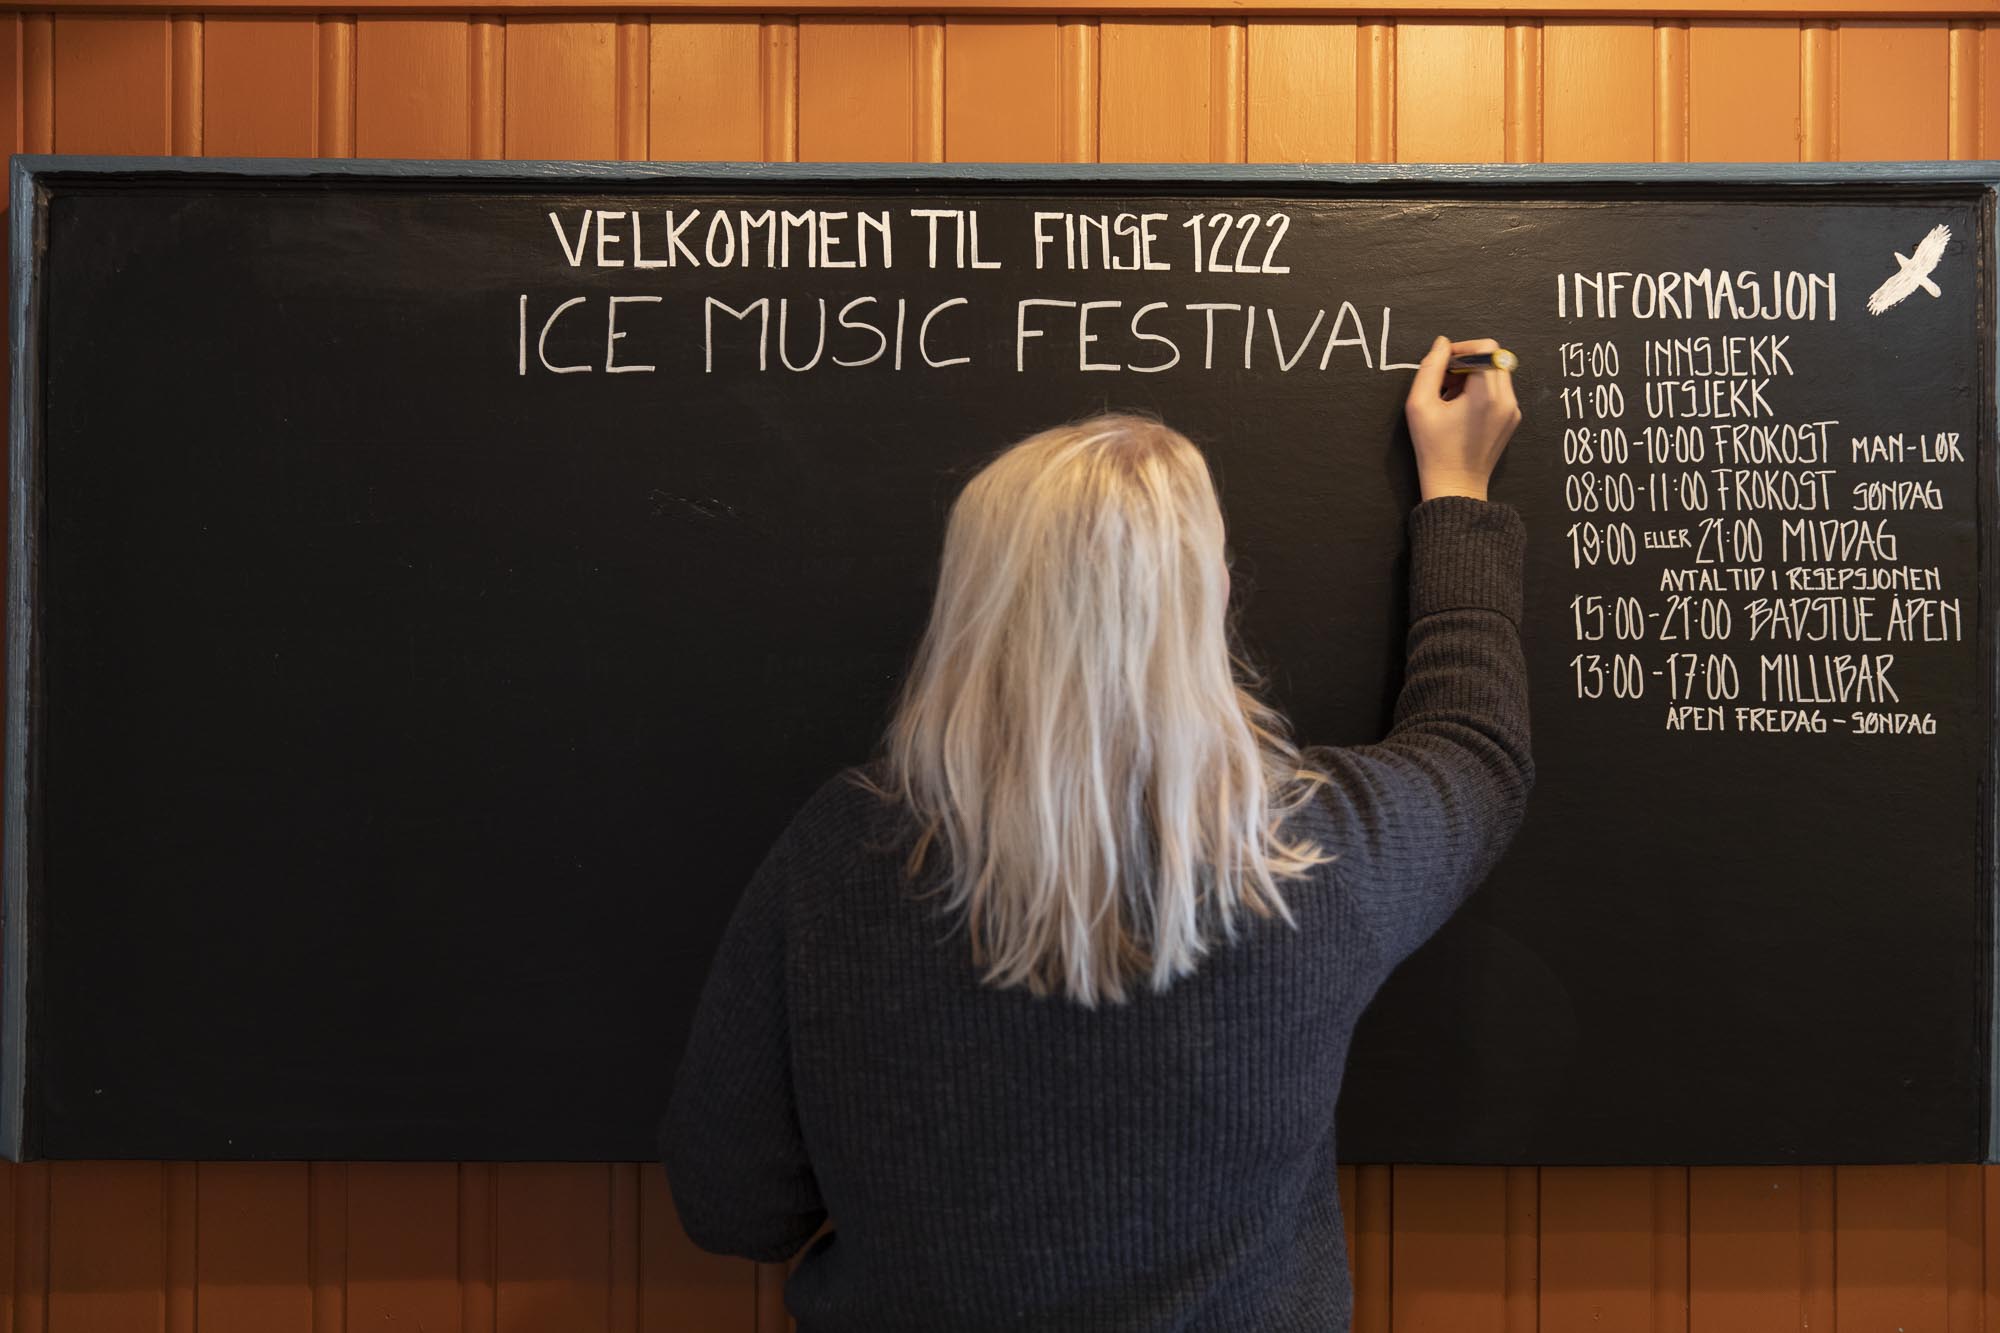 VELKOMMEN TIL FINSE 1222
ICE MUSIC FESTIVAL
INFORMASJON
15:00 INNSJEKK
11:00 UTSJEKK
08:00-10:00 FROKOST MAN-LØR
08:00-11:00 FROKOST SØNDAG
19:00 ELLER 21:00 MIDDAG
AVTAL TID I RESEPSJONEN
15:00-21:00 BADSTUE ÅPEN
13:00-17:00 MILLIBAR
ÅPEN FREDAG-SØNDAG